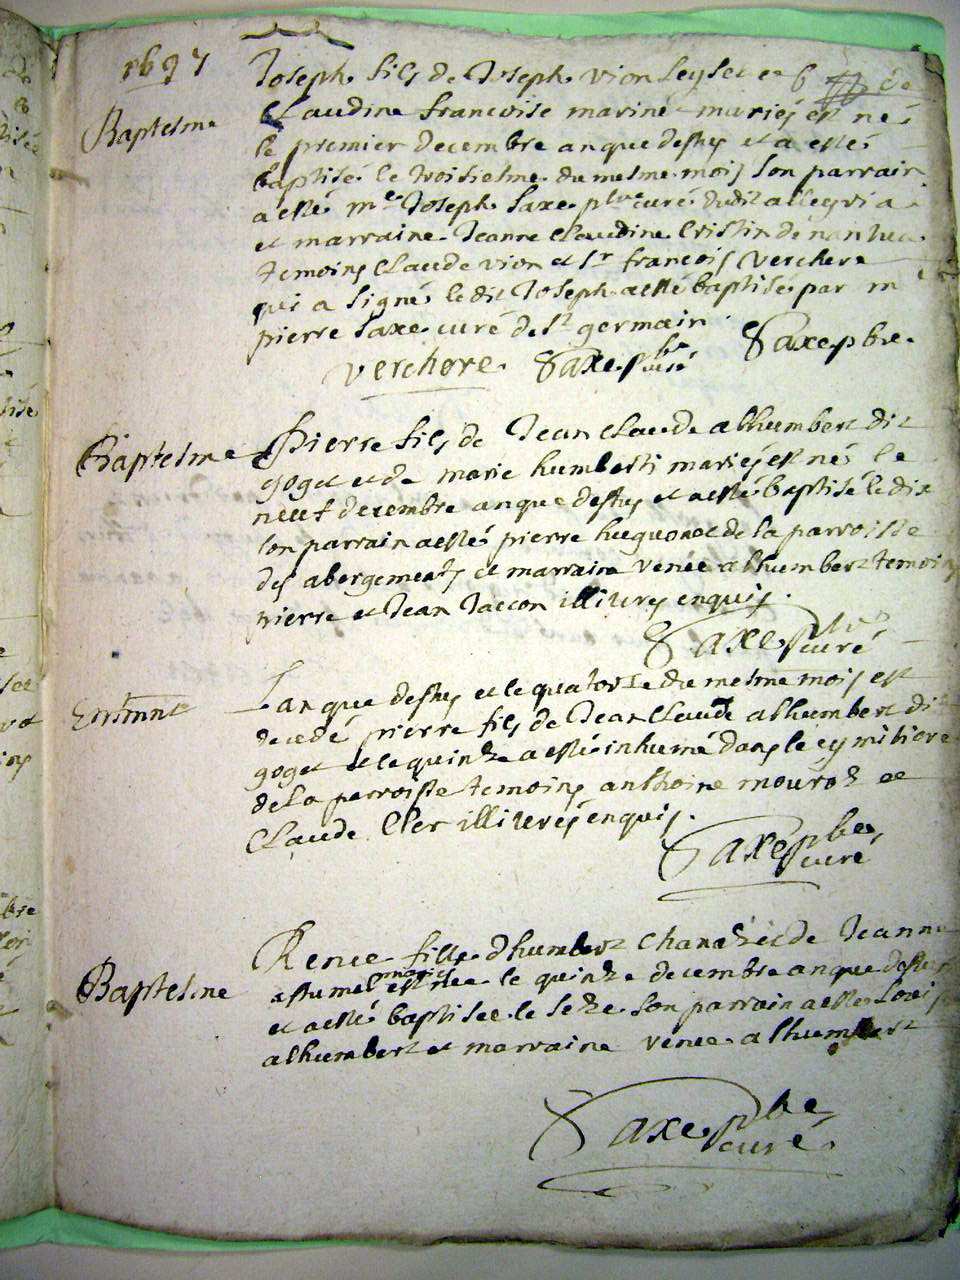 1697
Joseph fils de Joseph vion leyset et de
Baptesme
Claudine francoise marine mariés est né
le premier decembre an que dessus et a esté
baptisé le troisiesme du mesme mois son parrain
a esté me Joseph Saxe pbre curé dudit
et marraine Jeanne Claudine Cristin de nantua
temoins Claude vion et sr francois verchere
qui a signé ledit Joseph a esté baptisé par m
pierre Saxe curé de st germain
verchere Saxe pbre curé Saxe pbre
Baptesme
Pierre fils de Jean Claude alhumbert dit
goget et de marie humbert mariés est né le
neuf decembre an que dessus et a esté baptisé le dix
son parrain a esté pierre huguonet de la parroisse
des abergements et marraine venee alhumbert temoins
pierre et Jean Jaccon illiteres enquis.
Saxe pbre curé
Lan que dessus et le quatorze du mesme mois est
decedé pierre fils de Jean Claude alhumbert dit
goget et le quinze a esté inhumé dans le cymitiere
de la parroisse temoins anthoine mouroz et
Claude Cler illiterés enquis.
Saxe pbre curé
Baptesme
Renee fille dhumbert et de Jeanne
mariés
est née le quinze decembre an que dessus
et a esté baptisee le seze son parrain a esté Louis
alhumbert et marraine venee alhumbert
Saxe pbre
curé